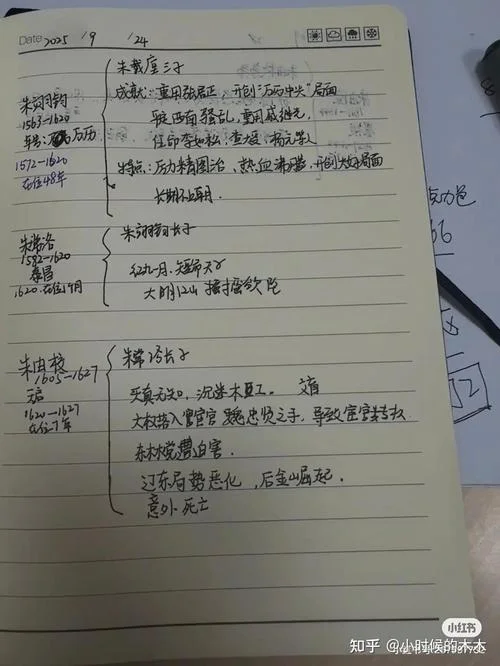 Date 2025 / 9 / 24
朱载垕三子
朱翊钧
1563-1620
年号: 万历
1572-1620
在位48年
成就: 重用张居正 开创"万历中兴"局面
平西南骚乱, 重用戚继光,
任
特点: 厉精图治, 热血沸腾, 开创大好局面
长期不上朝.
朱常洛
1582-1620
泰昌
1620.在位1个月
朱翊钧长子
在位一月. 短命天子
大明江山 摇摇欲坠
朱由校
1605-1627
天启
1620-1627
在位7年
朱常洛长子
天真无知, 沉迷木工. 文盲
大权落入宦官 魏忠贤之手, 导致宦官专权
东林党遭迫害.
辽东局势恶化, 后金崛起.
意外死亡
小红书
知乎 @小时候的木木